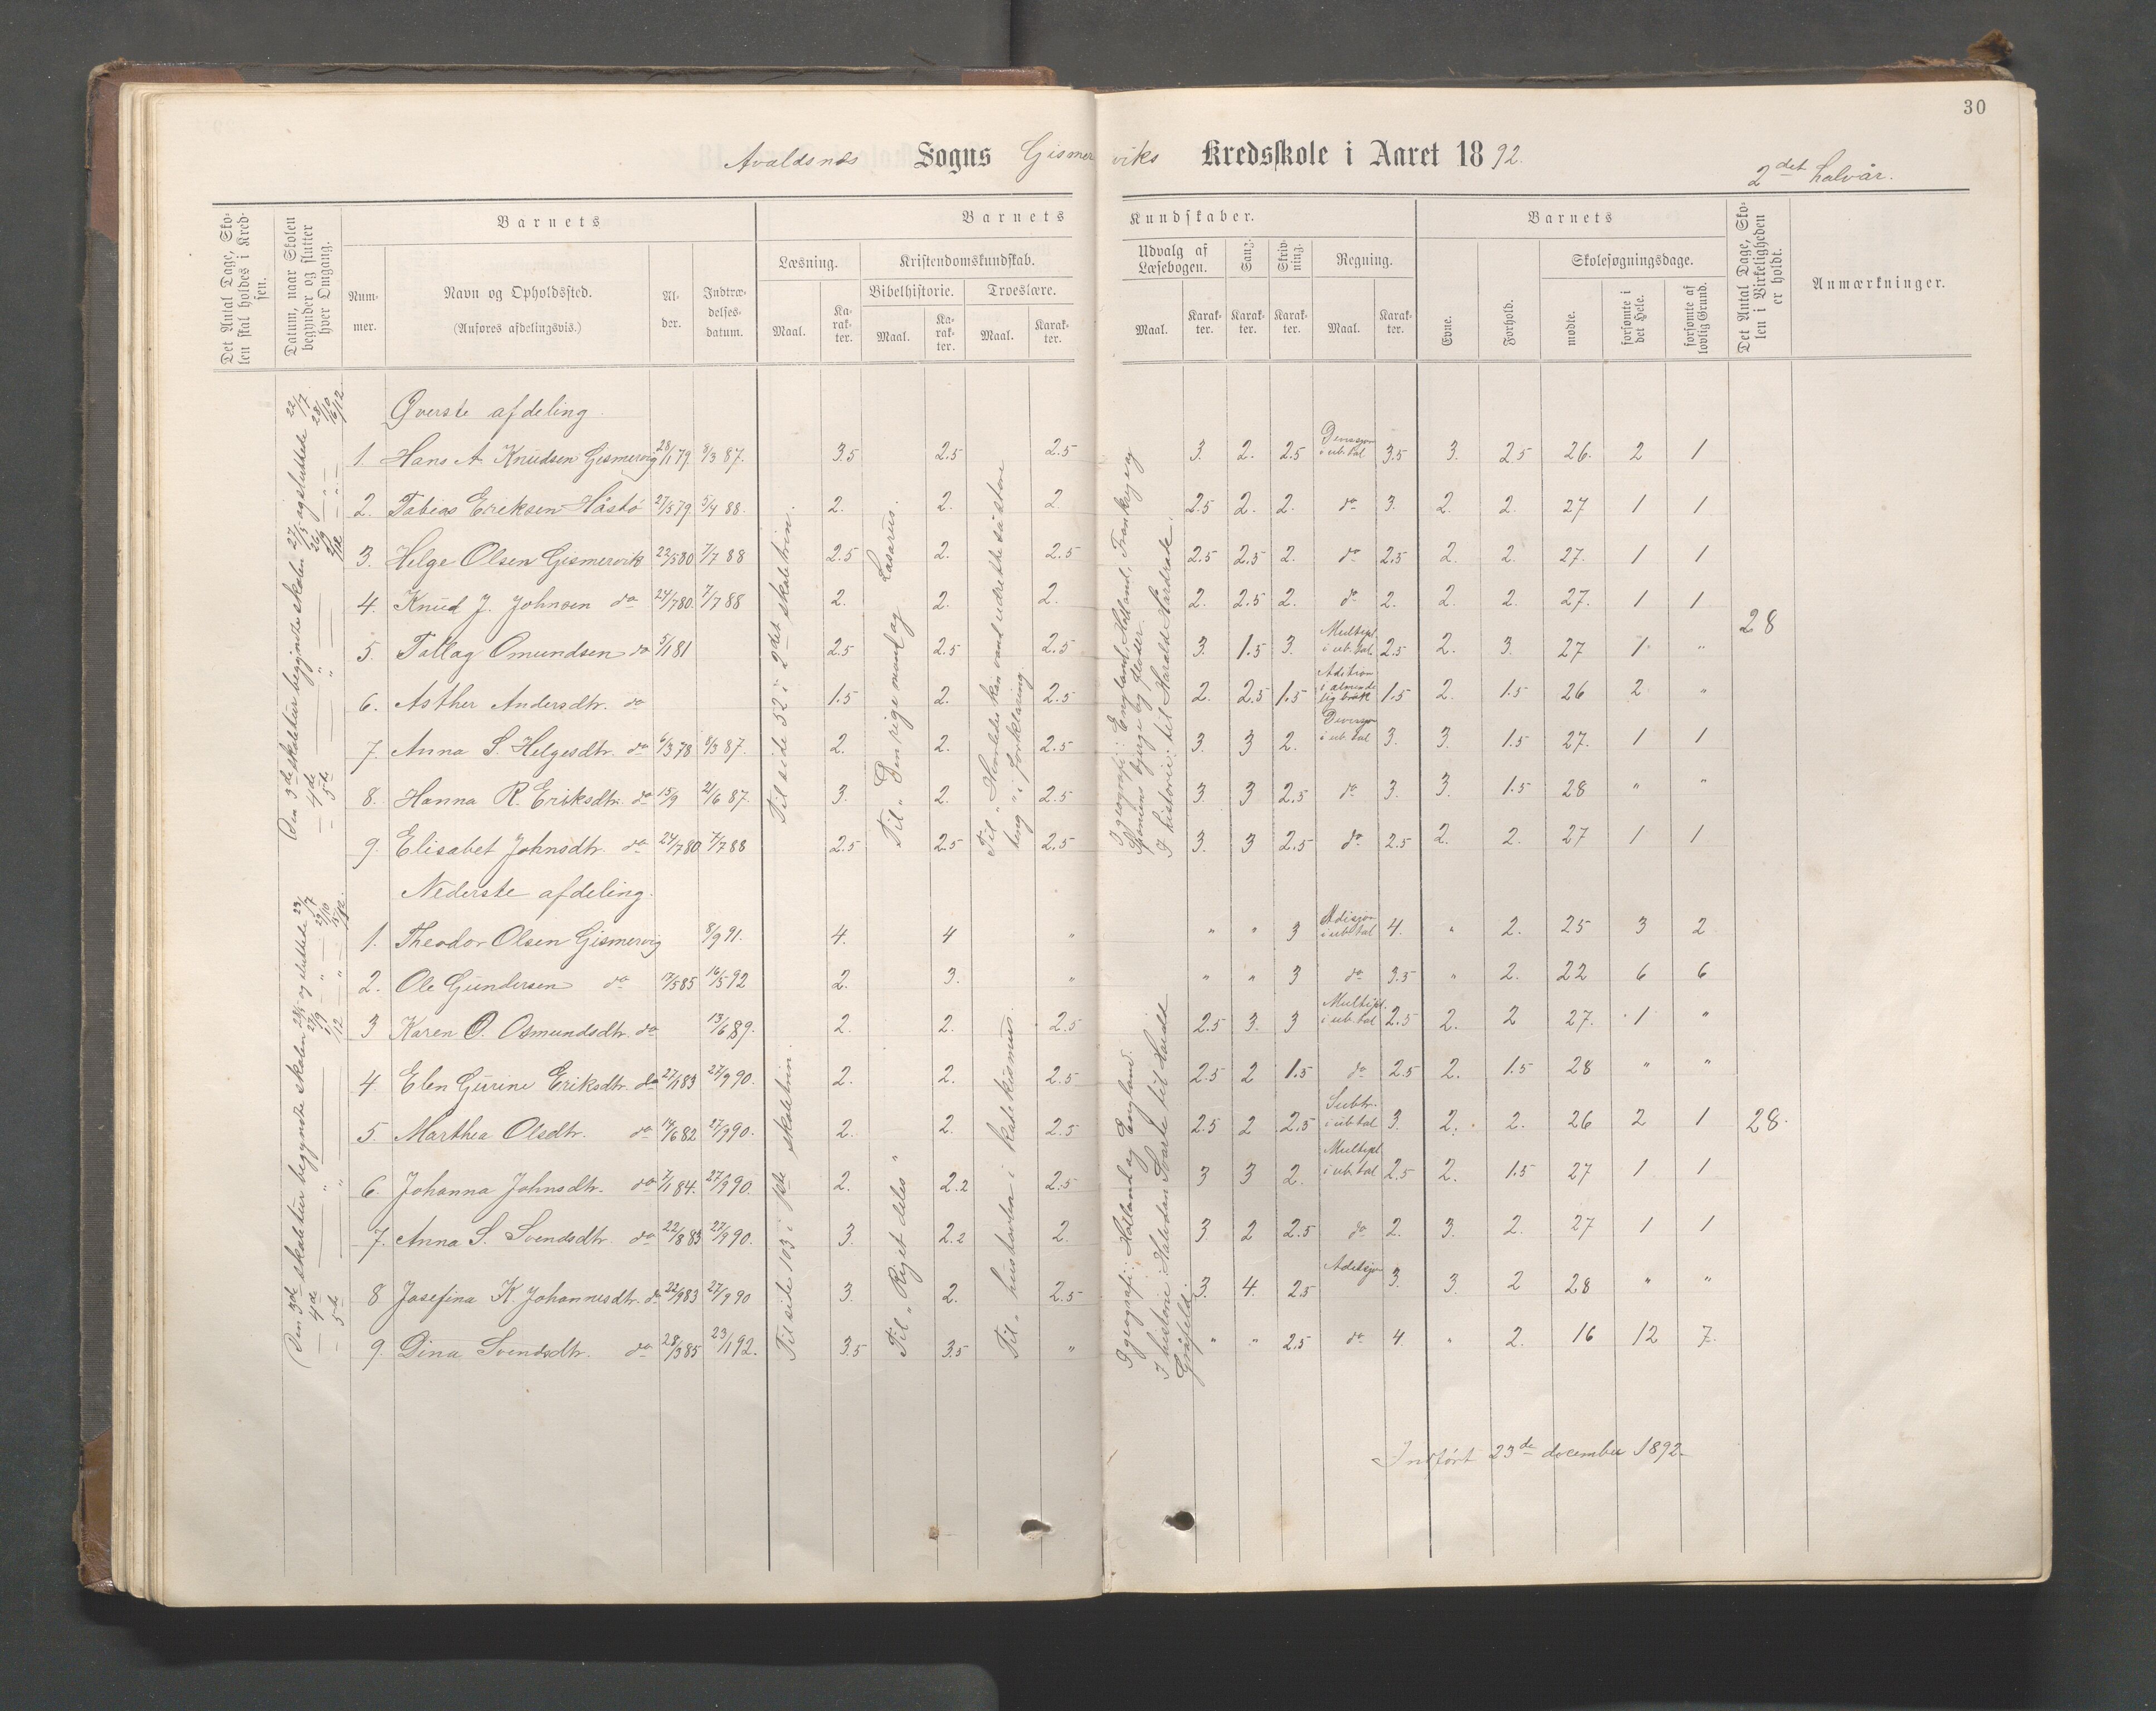 30
Avaldsnes Sogns Gismerviks Kredsskole i Aaret 1892.
2det halvår.
Det Antal Dage, Skolen skal holdes i Kredsen.
Datum, naar Skolen begynder og slutter hver Omgang.
Barnets
Nummer.
Navn og Opholdssted.
(Anføres afdelingsvis.)
Alder.
Indtrædelsesdatum.
Barnets Kundskaber.
Læsning.
Maal.
Karakter.
Kristendomskundskab.
Bibelhistorie.
Maal.
Karakter.
Troeslære.
Maal.
Karakter.
Udvalg af Læsebogen.
Maal.
Karakter.
Sang.
Karakter.
Skrivning.
Karakter.
Regning.
Maal.
Karakter.
Barnets
Evne.
Forhold.
Skolesøgningsdage.
mødte.
forsømte i det Hele.
forsømte af lovlig Grund.
Det Antal Dage, Skolen i Virkeligheden er holdt.
Anmærkninger.
Øverste afdeling
1 Hans A. Knudsen Gismervig 28/1 79. 8/3 87. 3.5 2.5 2.5 3. 2. 2.5 i ub. tal 3.5 3. 2.5 26. 2 1
2. Tobias Eriksen Håstø 27/5 79. 5/4 88. 2. 2. 2. 2.5 2. 2. do 3. 2. 2. 27 1 1
3. Helge Olsen Gismervik 22/5 80 7/7 88 2.5 2. 2.5 2.5 2.5 2. do 2.5 2. 2. 27. 1 1
4. Knud J. Johnsen do 24/7 80. 7/7 88 2. 2. 2. 2. 2.5 2. do 2. 2. 2. 27. 1 1
5. Tallag Omundsen do 5/1 81 2.5 2.5 2.5 3. 1.5 3. Multipl. i ub. tal 2.5 2. 3. 27 1 "
6. Asther Andersdtr. do 1.5 2. 2.5 2. 2.5 1.5 Adition i almindelig brøk 1.5 2. 1.5 26 2 "
7. Anna S. Helgesdtr. do 6/3 78 8/3 87. 2. 2. 2.5 3. 3 2. i ub. tal 3. 3. 1.5 27. 1 1
8. Hanna R. Eriksdtr. do 15/9 21/6 87. 3. 2. 2.5 3. 3 2.5 do 3. 3. 1.5 28 " "
9. Elisabet Johnsdtr. do 24/7 80 7/7 88 2.5 2.5 2.5 3. 3 2.5 do 2.5 2. 2. 27 1 1
28
Til side 52 i 2det skoletrin.
Til "Den rige mand og Lasarus.
Til "Hvorledes kan vand udrette så store ting" i forklaring
I geografi: England, Holland, Frankrig og Spaniens bjerge og floder.
I historie: til Harald Hårdråde.
Den 3de skoletur begyndte skolen 27/5 og sluttede 22/7
— 4de — " — 26/9 — " — 28/10
— 5te — " — 2/12 — " — 16/12
Nederste afdeling.
1. Theodor Olsen Gismervig 8/9 91. 4. 4 " " " 3 Adisjon i ub. tal 4. " 2. 25 3 2
2. Ole Gundersen do 17/5 85 16/5 92 2. 3. " " " 3 do 3.5 " 2. 22 6 6
3 Karen O. Osmundsdtr. do 13/6 89. 2. 2. 2.5 2.5 3. 3 Multipl. i ub. tal 2.5 2. 2 27. 1 "
4. Elen Gurine Eriksdtr. do 27/1 83 27/9 90. 2. 2. 2.5 2.5 2 1.5 do 2.5 2. 1.5 28 " "
5. Marthea Olsdtr. do 14/6 82 27/9 90. 2. 2. 2.5 2.5 2 2.5 Subtr. i ub. tal 3. 2. 2. 26 2 1
6. Johanna Johnsdtr. do 7/1 84. 27/9 90. 2. 2.2 2.5 3 3 2. Multipl i ub. tal 2.5 2. 1.5 27 1 1
7. Anna S. Svendsdtr. do 22/8 83 27/9 90. 3. 2.2 2. 3 2 2.5 do 2. 3. 2. 27 1 1
8 Josefina K. Johannesdtr. do 22/9 83 27/9 90 3. 2. 2.5 3. 4. 2.5 Adisjon 3. 3. 2 28 " "
9. Dina Svendsdtr. do 28/3 85 23/1 92. 3.5 3.5 " " " 2.5 do 4. " 2. 16 12 7.
28.
Til side 103 i 1ste skoletrin.
Til "Riget deles"
Til " hustavlen i katekismus.
I geografi: Holland og England.
I historie: Halvdan Svarte til Harald Gråfeld.
Den 3de skoletur begyndte skolen 28/5 og sluttede 23/7
— 4de — " — 27/9 — " — 29/10
— 5te — " — 1/12 — " — 15/12.
Indført 23de december 1892.